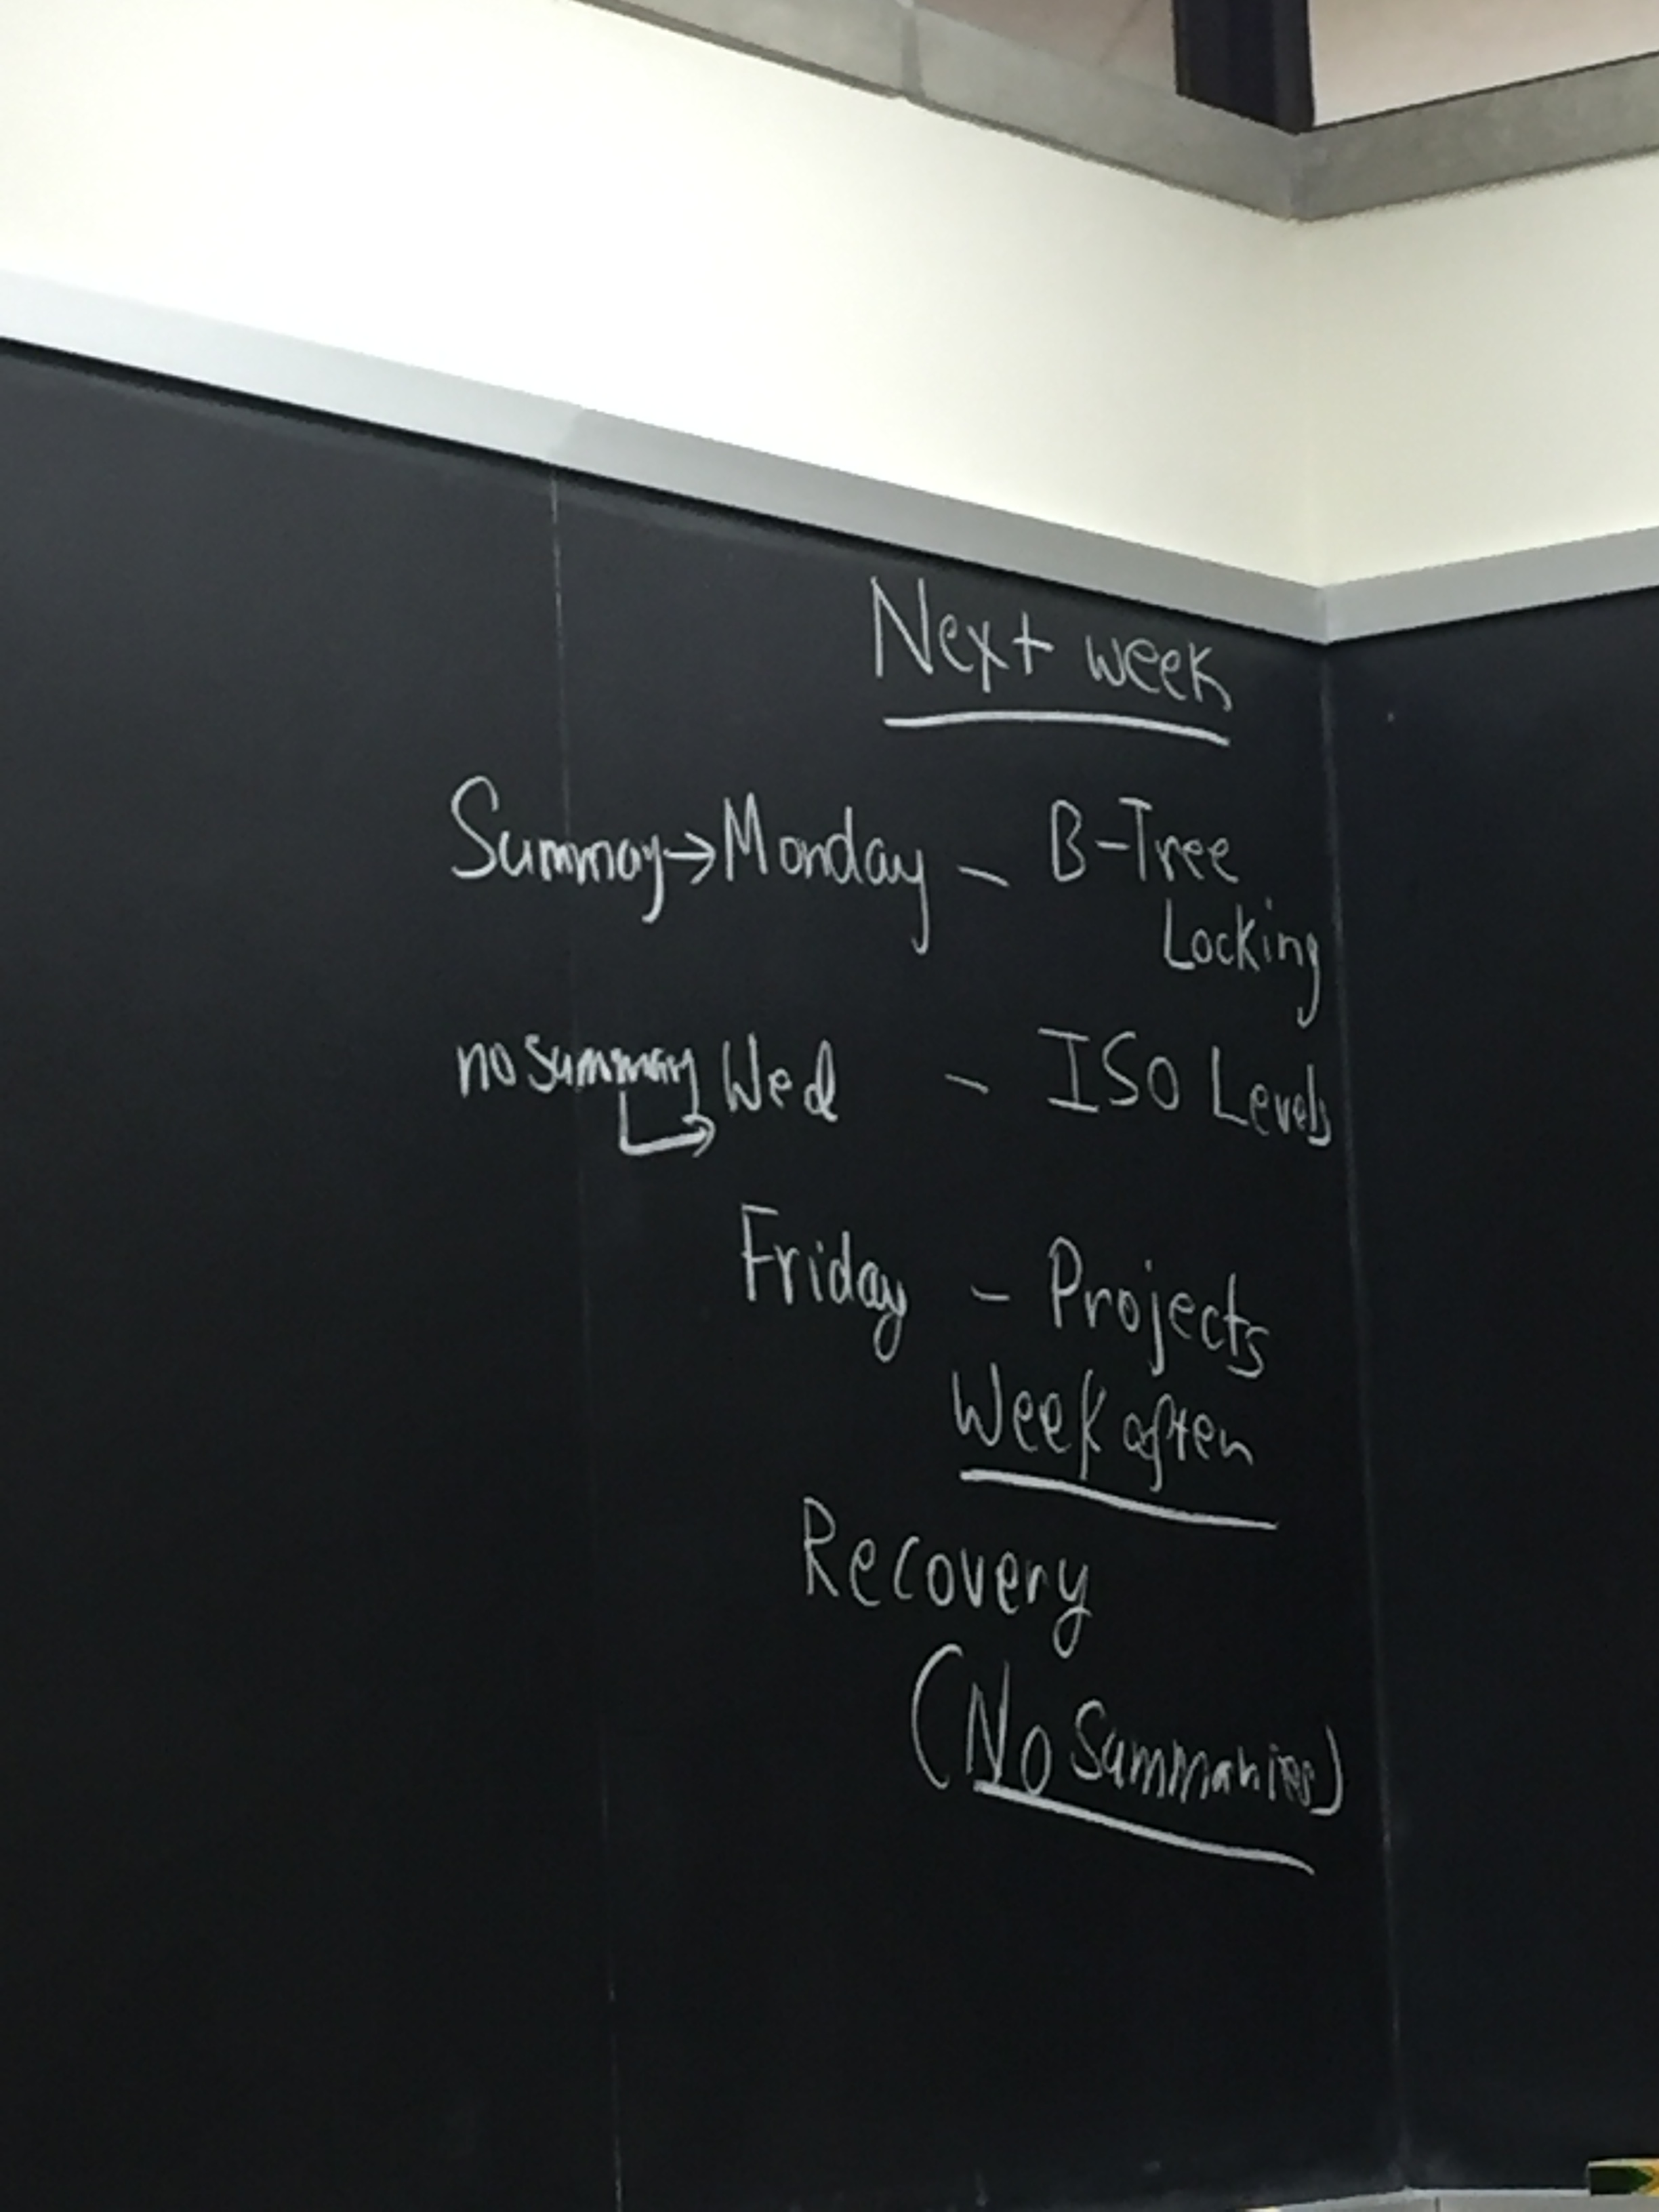 Next week
Summay→Monday – B-Tree
Locking
no summay Wed – ISO Levels
Friday – Projects
Week after
Recovery
(No Summaries)